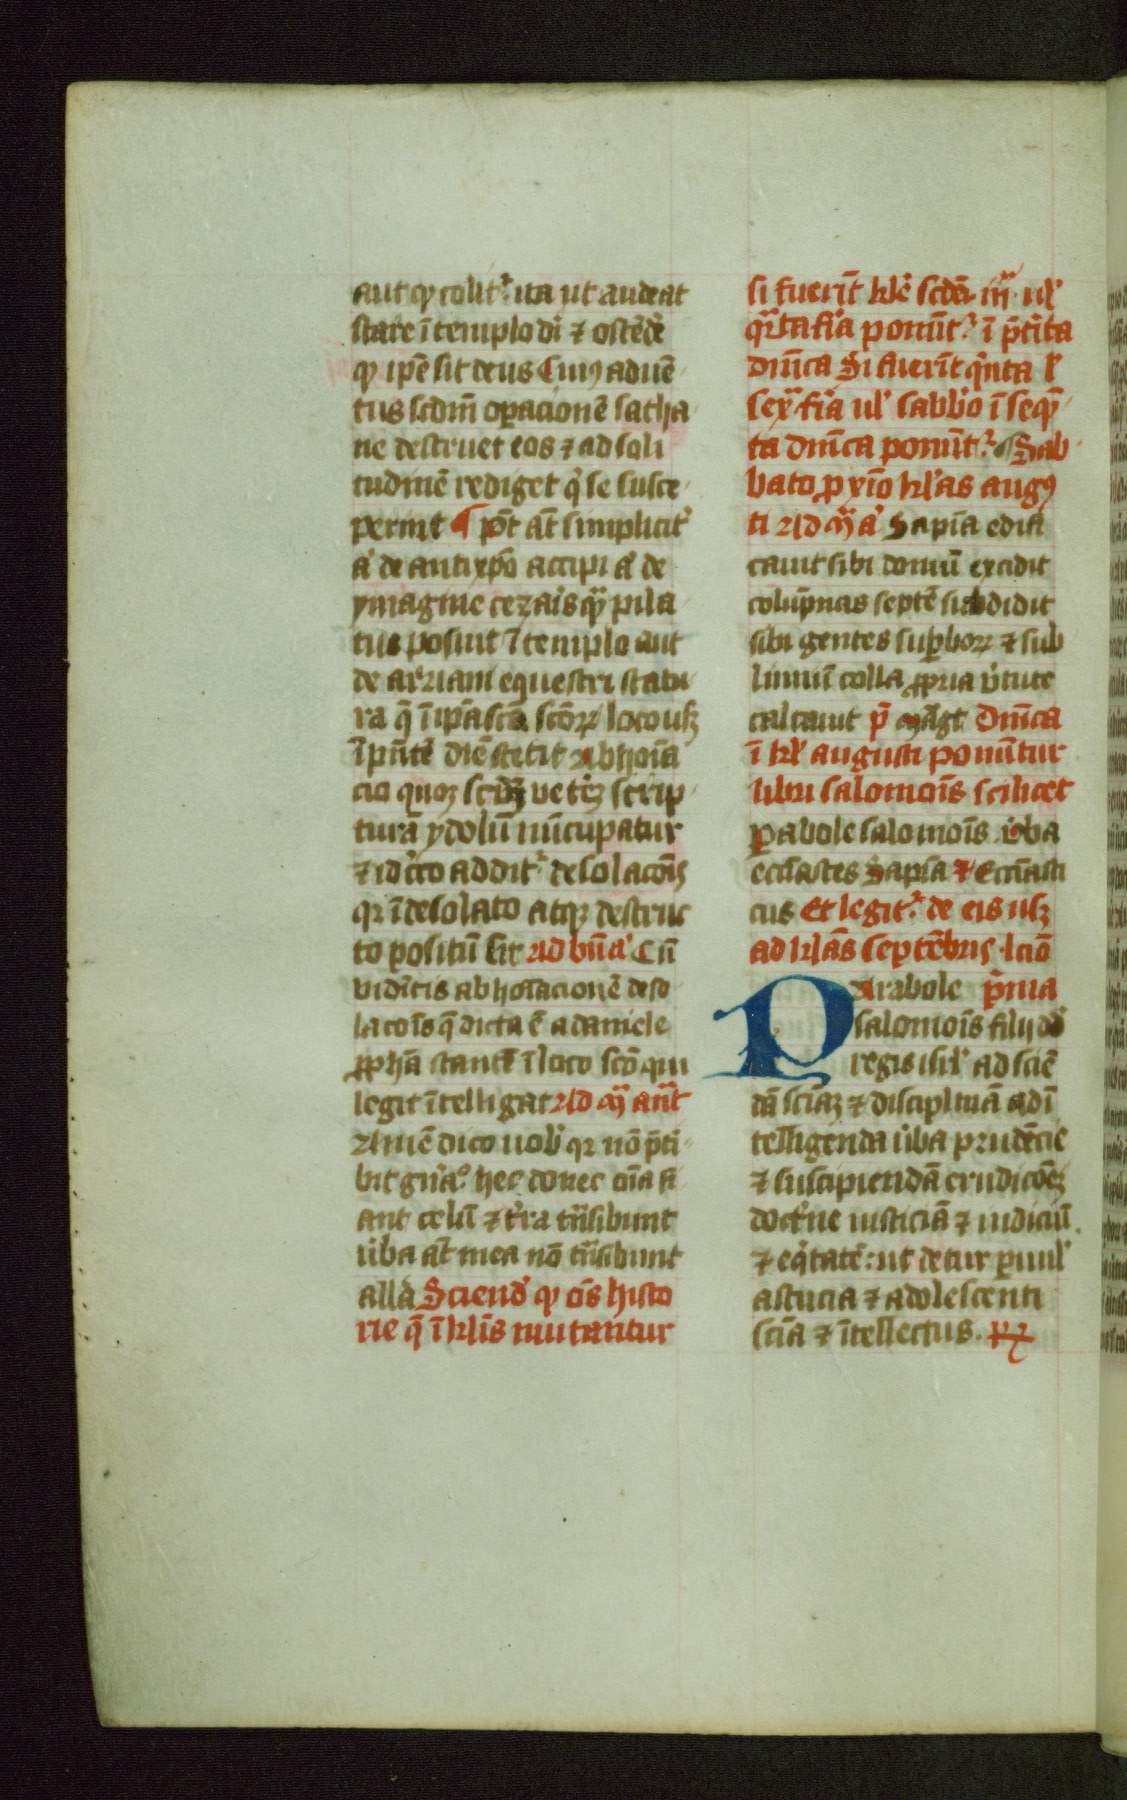 aut qͥ colit᷑. ita ut audeat
stare ī templo dī ⁊ ostēdē
qͥ ipē sit deus Cuiꝰ aduē
tus scdm̄ oꝑacionē satha
ne destruet eos ⁊ ad soli
tudinē rediget qͥ se susce
perint ¶ pōt aūt simplicit᷑
aͭ de antixp̄o accipi aͭ de
ymagine cezaris quā pila
tus posuit ī templo aut
de adriani equestri statu
ra q̄ ī ip̄a scā scōꝝ loco usqꝫ
ī pn̄tē diē stetit Abhoīa
cio quoqꝫ scdm̄ veterē scrip
tura ydolū nūcupatur
⁊ idcͥco addit᷑ desolacōis
qꝛ ī desolato atqꝫ destruc
to positū sit ad bn̄aͥ Cū
viditis abhoīacionē deso
lacoīs q̄ dicta ē a daniele
ꝓphā stantē ī loco scō qui
legit ītelligat Ad mͣ an̄t
Amē dico uob̄ qꝛ nō p̄ti
bit gn̄acͦ hec donec oīa fi
ant celū ⁊ t̄ra trāsibunt
ūba aūt mea nō trāsibunt
alla Sciend̄ qͥ oēs histo
rie q̄ ī kl̄is mutantur
si fuerīt kl̄e scdā. iijͣ. ul̄
qͣrta fīa ponūt᷑ ī p̄cēdēta
dnīca Si fuerīt qͥnta l̄
sexͣ fīa ul̄ sabb̄o ī sequē
ta dnīca ponūt᷑ ¶ Sab
bato ꝓxīo kl̄as augꝰ
ti Ad mͣ aͥ Sapīa edifi
cauit sibi domū excidit
colūpnas septē subdidit
sibi gentes suꝑboꝝ ⁊ sub
limiū colla ꝓpria v̄tute
calcauit pͣ māgt Dnīca
ī kl̄ augusti ponūtur
libri salomoīs scilicet
ꝑabole salomoīs ūba
eccl̄iastes Sapīa ⁊ Eccl̄iasti
cus Et legit᷑ de eis usqꝫ
ad kl̄as septēbris. lcīo
Parabole p̄ma
salomoīs filij dd̄
regis isrl̄ ad sciē
dā sciāꝫ ⁊ disciplinā ad ī
telligenda ūba prudēcie
⁊ suscipiendā erudicōeꝫ
doct̄ne iusticiā ⁊ iudiciū
⁊ eqͥtatē: ut detur ꝑuul̄
astucia ⁊ adolescenti
scīa ⁊ ītellectus.